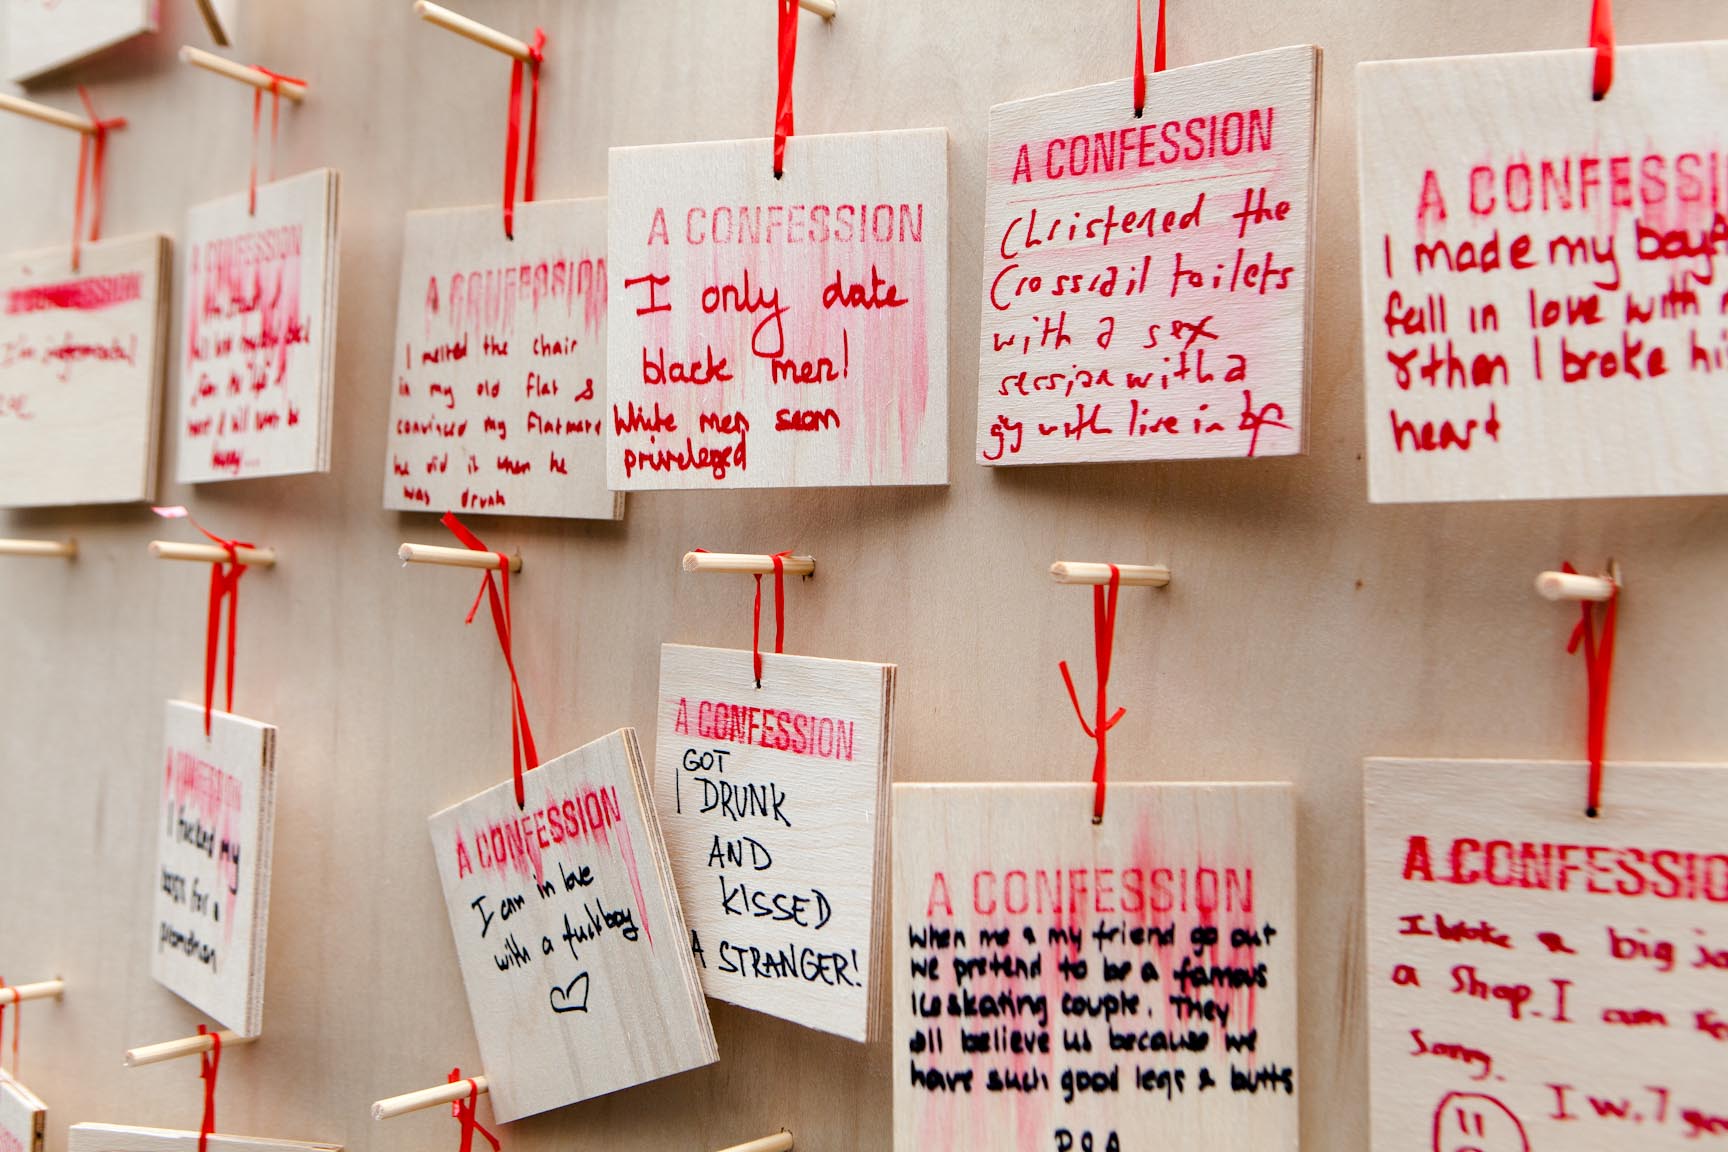 A CONFESSION
I'm
A CONFESSION
A CONFESSION
I melted the chair
in my old flat &
convinced my flatmate
he did it when he
was drunk
A CONFESSION
I only date
black men!
White men seem
priveleged
A CONFESSION
Christened the
Crossrail toilets
with a sex
session with a
guy with live in bf
A CONFESSI
I made my boyf
fall in love with
& then I broke hi
heart
A CONFESSION
I fucked my
boss for a
promotion
A CONFESSION
I am in love
with a fuckboy
A CONFESSION
GOT
I DRUNK
AND
KISSED
A STRANGER!
A CONFESSION
When me & my friend go out
we pretend to be a famous
Iceskating couple. They
all believe us because we
have such good legs & butts
D&A
A CONFESSIO
I broke a big ja
a shop. I am so
Sorry.
I w,